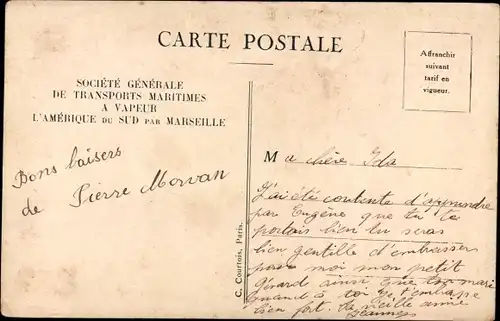 CARTE POSTALE
Affranchir
suivant
tarif en
vigueur.
SOCIÉTÉ GÉNÉRALE
DE TRANSPORTS MARITIMES
A VAPEUR
L'AMÉRIQUE DU SUD PAR MARSEILLE
Bons baisers
de Pierre Morvan
C. Courtois, Paris.
Ma chère Ida
J'ai été contente d'apprendre
par Eugène que tu te
portais bien tu seras
bien gentille d'embrasser
pour moi mon petit
Gérard ainsi que ton mari
quand à toi je t'embrasse
bien fort. ta vieille amie
Jeanne